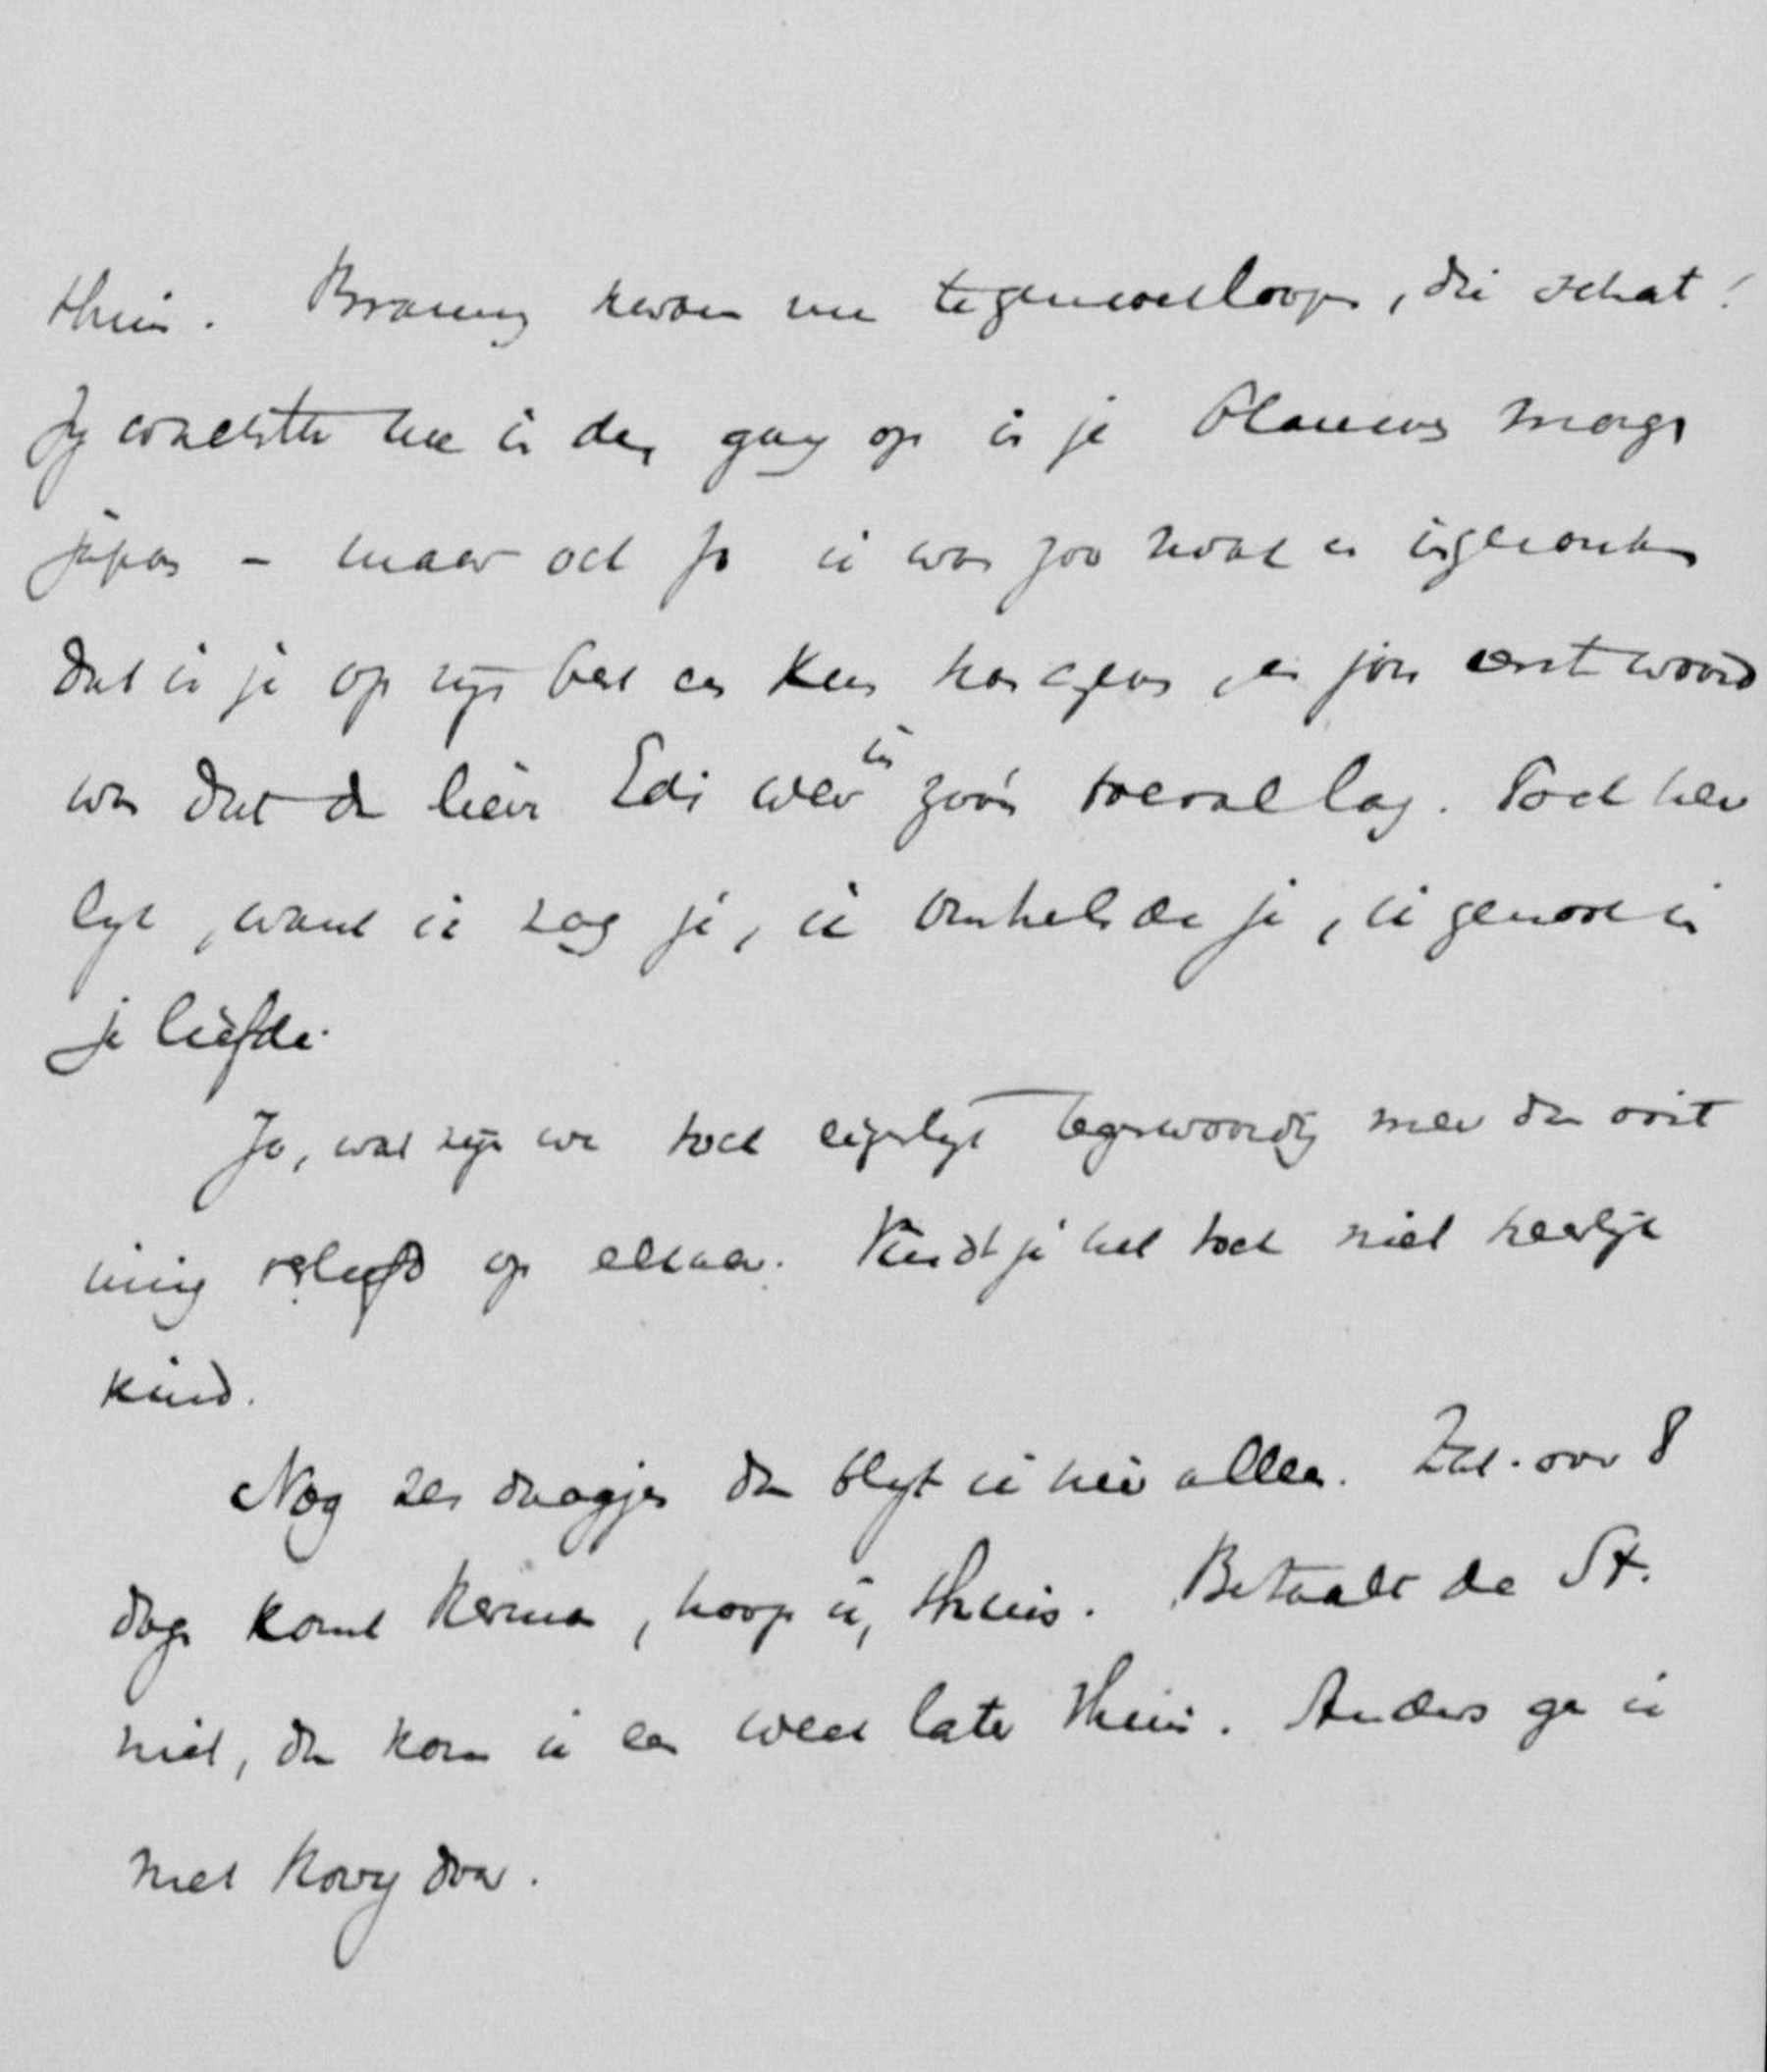 thuis. Branny kwam me tegemoetloopen, die schat!
Jy wachtte me in den gang op in je blauwen morgen
japon – maar och Jo ik was zoo
dat ik je op zijn best een kus kon geven, en jou antwoord
was dat de lieve Edi weer in zoo'n toeval lag. Toch heer
lyk, want ik zag je, ik omhelsde je, ik genoot in
je liefde.
Jo, wat zijn we toch eigenlyk tegenwoordig meer dan ooit
innig verliefd op elkaar. Vindt je het toch niet heerlyk
kind.
Nog zes daagjes dan blyf ik hier alleen. Zat. over 8
dagen komt Kerma, hoop ik, thuis. Betaalt de St.
niet, dan kom ik een week later thuis. Anders ga ik
met door.